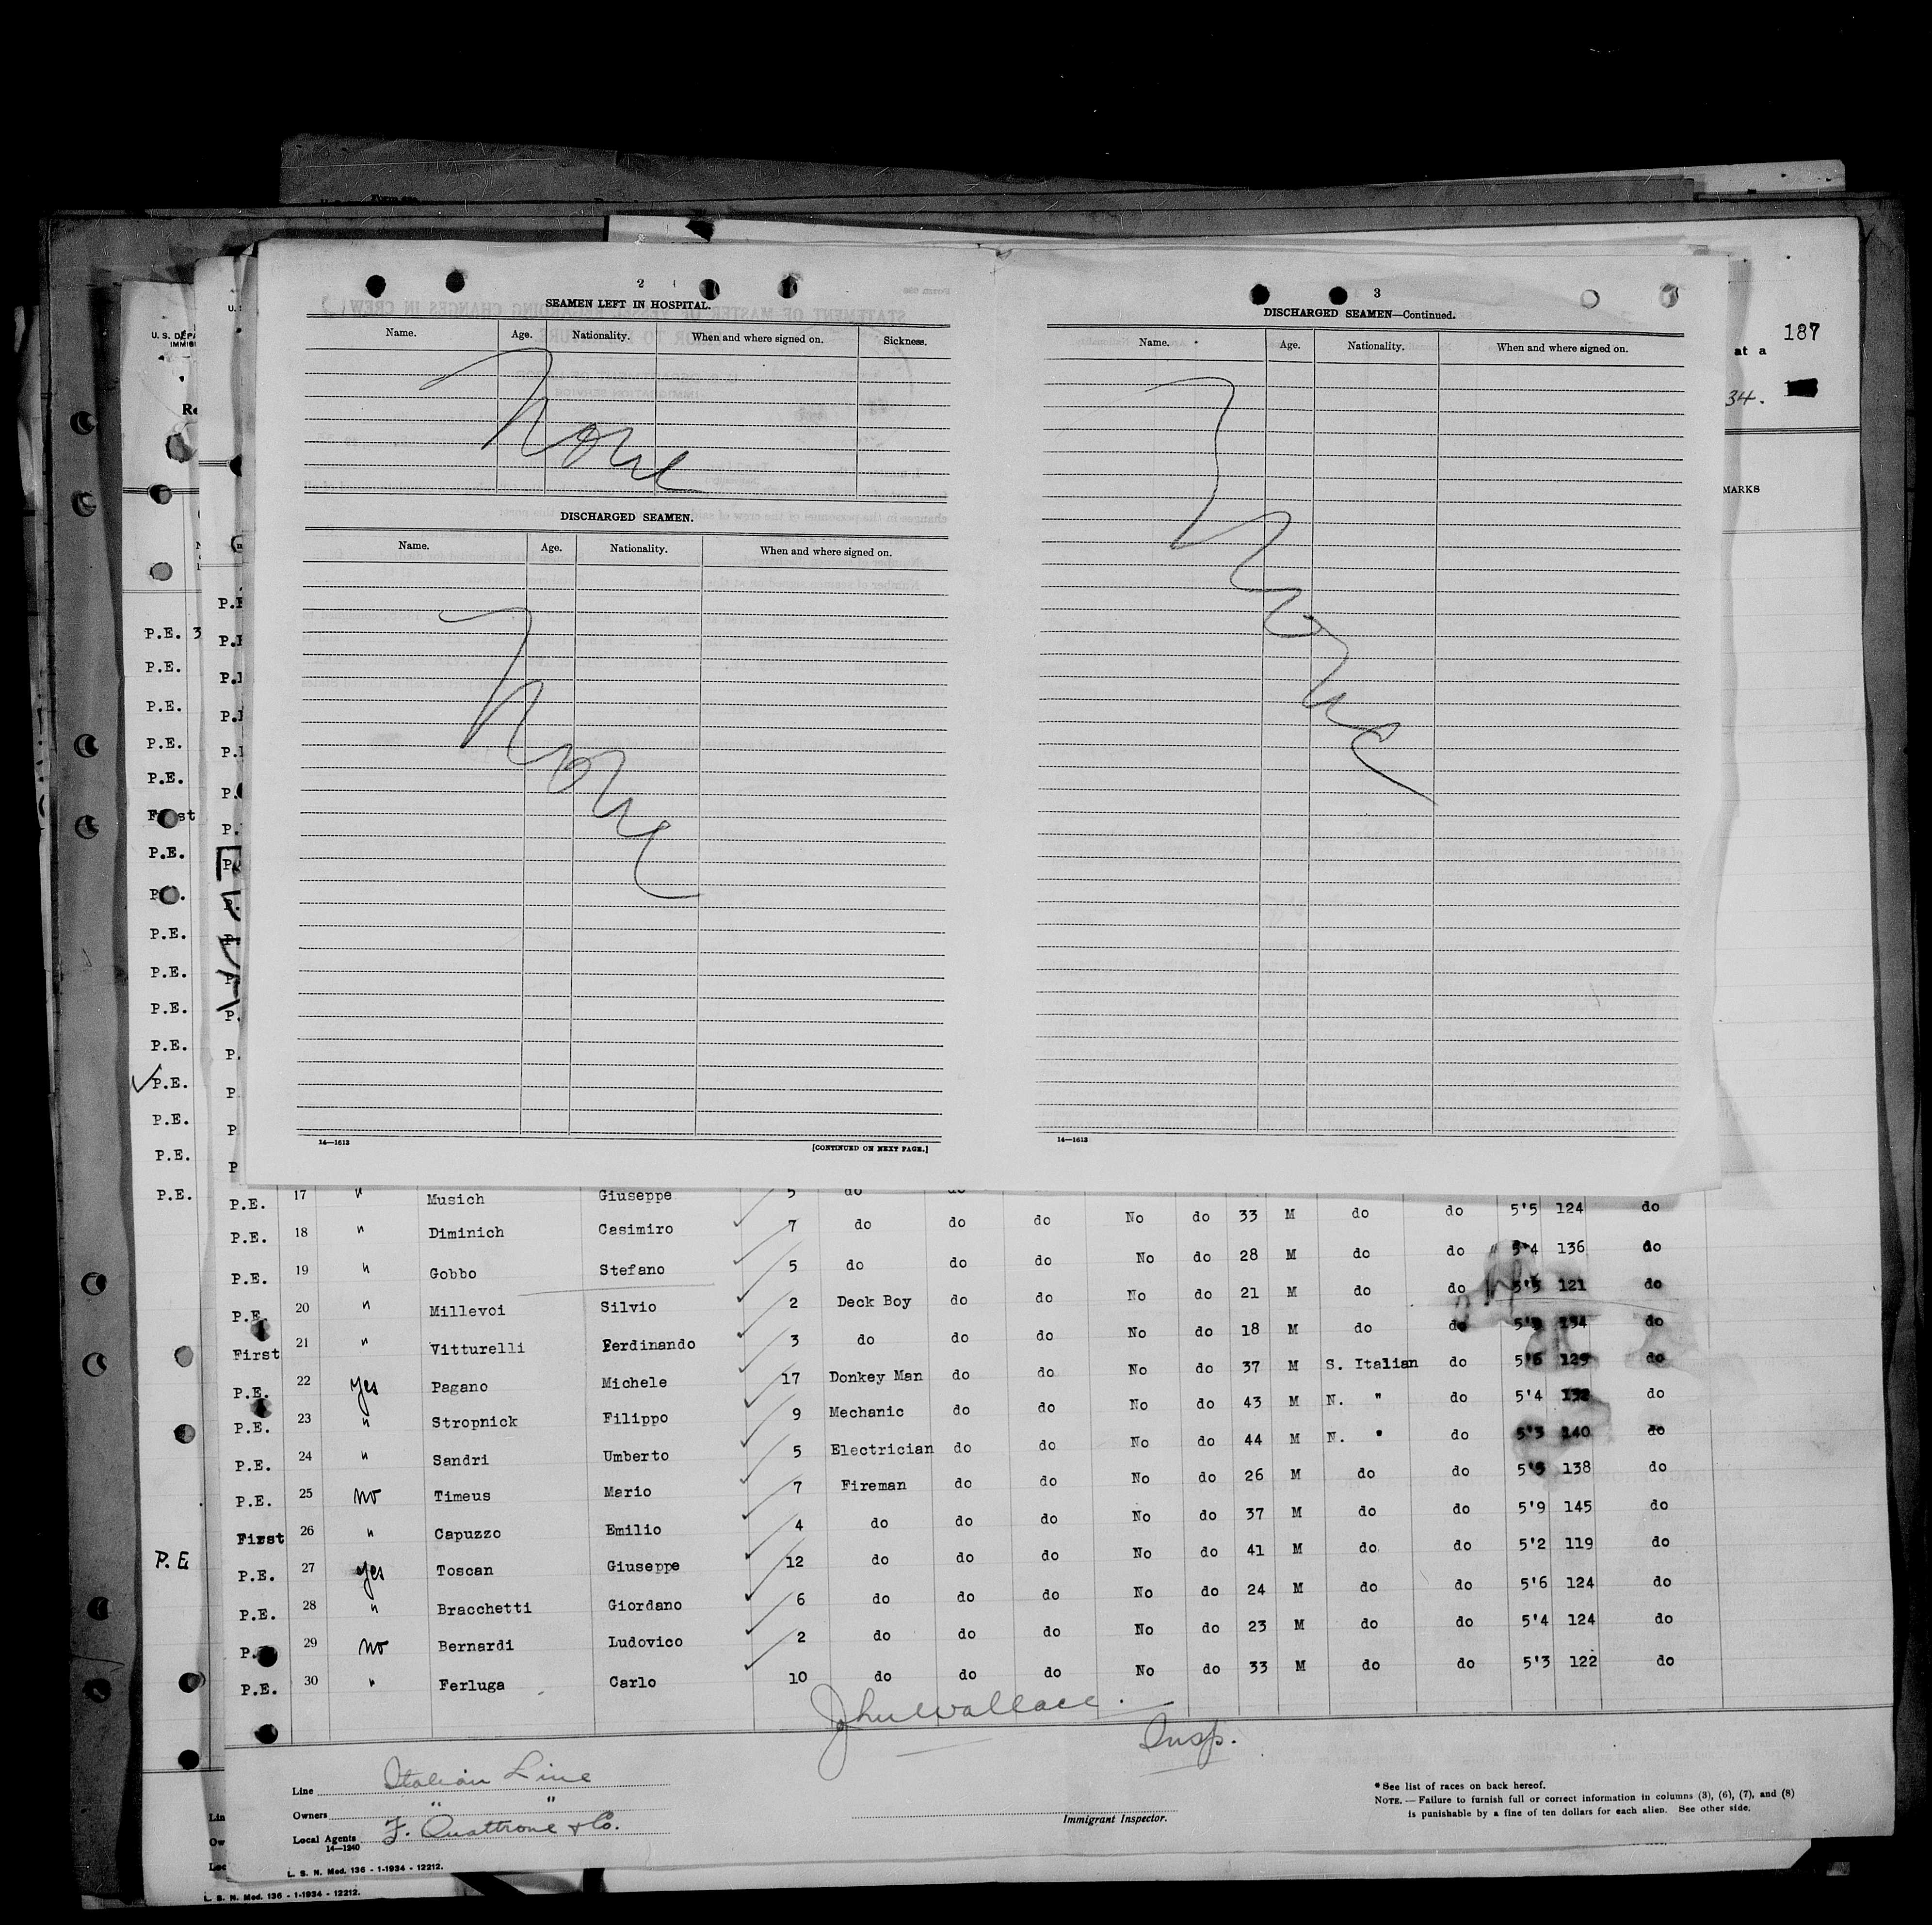 2
SEAMEN LEFT IN HOSPITAL.
Name. Age. Nationality. When and where signed on. Sickness.
None
DISCHARGED SEAMEN.
Name. Age. Nationality. When and where signed on.
None
14—1613 [CONTINUED ON NEXT PAGE.]
3
DISCHARGED SEAMEN—Continued.
Name. Age. Nationality. When and where signed on.
None
14—1613
187
at a
34.
MARKS
P.E. 3
P.E.
P.E.
P.E.
P.E.
First
P.E.
P.E.
P.E.
P.E.
P.E.
P.E.
P.E.
P.E.
P.E.
P.E
P.E. 17 " Musich Giuseppe 5 do do No do 33 M do do 5'5 124 do
P.E. 18 " Diminich Casimiro 7 do do do No do 28 M do do 5'4 136 do
P.E. 19 " Gobbo Stefano 5 do do do No do 21 M do do 5'5 121 do
P.E. 20 " Millevoi Silvio 2 Deck Boy do do No do 18 M do do 134 do
First 21 " Vitturelli Ferdinando 3 do do do No do 37 M S. Italian do 5'6 129 do
P.E. 22 yes Pagano Michele 17 Donkey Man do do No do 43 M N. " do 5'4 132 do
P.E. 23 " Stropnick Filippo 9 Mechanic do do No do 44 M N. " do 5'5 140 do
P.E. 24 " Sandri Umberto 5 Electrician do do No do 26 M do do 5'5 138 do
P.E. 25 no Timeus Mario 7 Fireman do do No do 37 M do do 5'9 145 do
First 26 " Capuzzo Emilio 4 do do do No do 41 M do do 5'2 119 do
P.E. 27 yes Toscan Giuseppe 12 do do do No do 24 M do do 5'6 124 do
P.E. 28 " Bracchetti Giordano 6 do do do No do 23 M do do 5'4 124 do
29 no Bernardi Ludovico 2 do do do No do 33 M do do 5'3 122 do
P.E. 30 " Ferluga Carlo 10 do do do
John Wallace.
Insp.
Line Italian Line
Owners " "
Local Agents F. Quattrone & Co.
14—1240
Immigrant Inspector.
*See list of races on back hereof.
NOTE.—Failure to furnish full or correct information in columns (3), (6), (7), and (8)
is punishable by a fine of ten dollars for each alien. See other side.
L. S. N. Med. 136 - 1-1934 - 12212.
L. S. N. Med. 136 - 1-1934 - 12212.